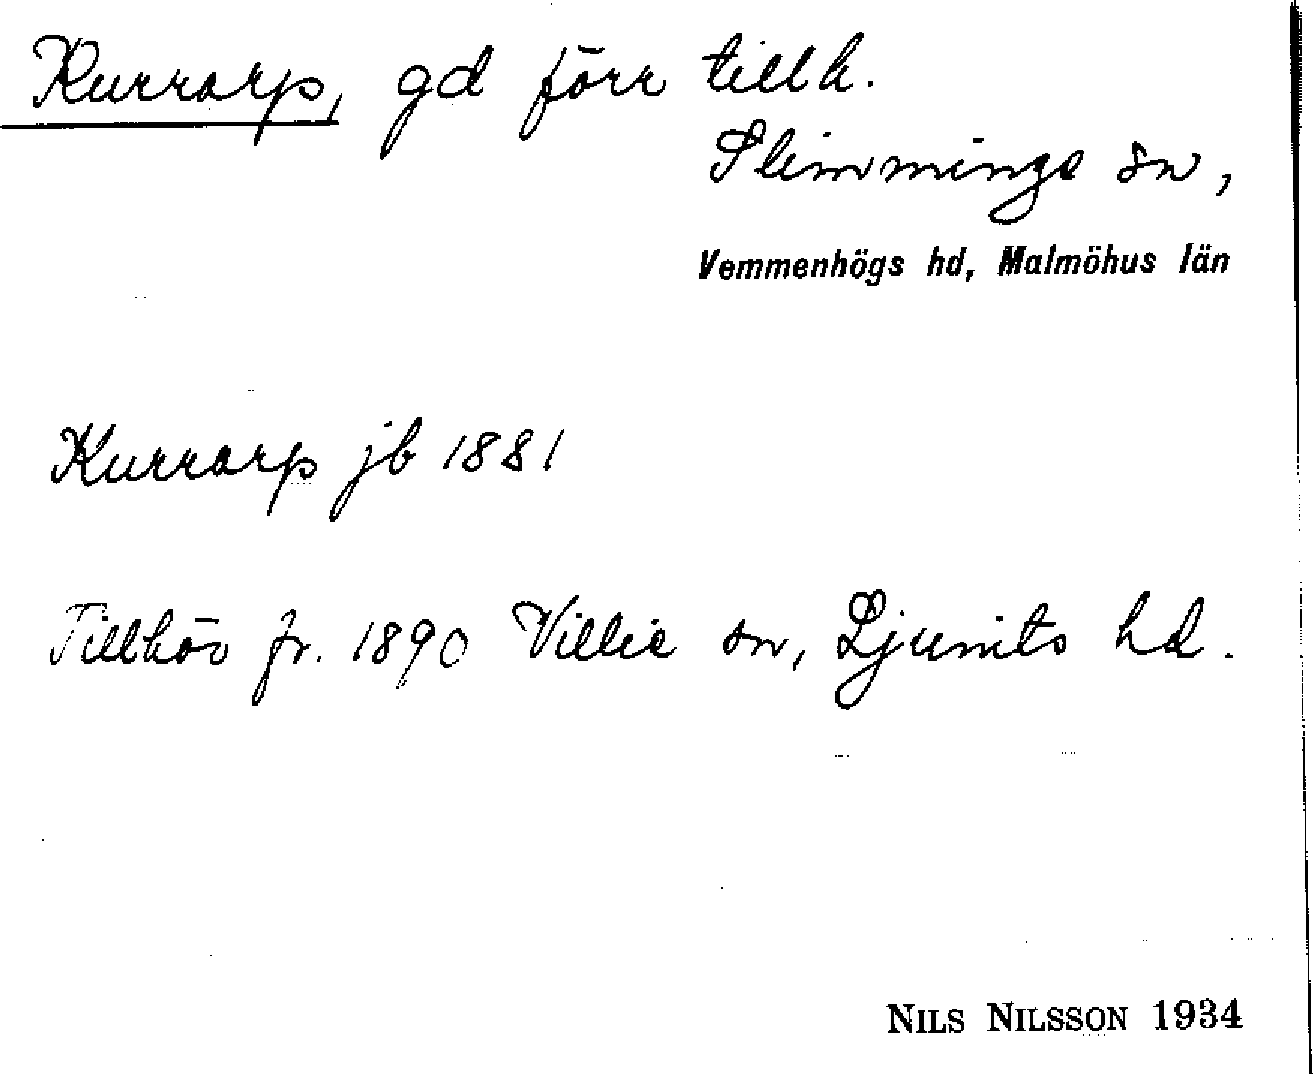 Kurrarp, gd förr tillh.
Slimminge sn,
Vemmenhögs hd, Malmöhus län
Kurrarp jb 1881
Tillhör fr. 1890 Villie sn, Ljunits hd.
NILS NILSSON 1934